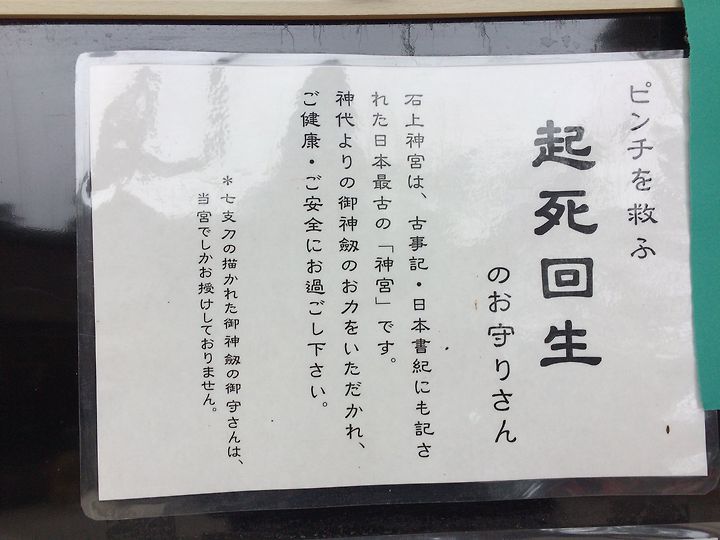 ピンチを救ふ
起死回生
のお守りさん
石上神宮は、古事記・日本書紀にも記さ
れた日本最古の「神宮」です。
神代よりの御神劔のお力をいただかれ、
ご健康・ご安全にお過ごし下さい。
＊七支刀の描かれた御神劔の御守さんは、
当宮でしかお授けしておりません。